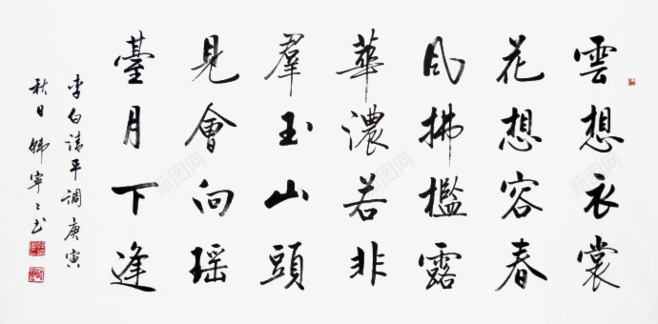 雲想衣裳
花想容春
风拂檻露
華濃若非
羣玉山頭
見會向瑶
臺月下逢
李白清平调庚寅
秋日韩寧〻书
新图网
新图网